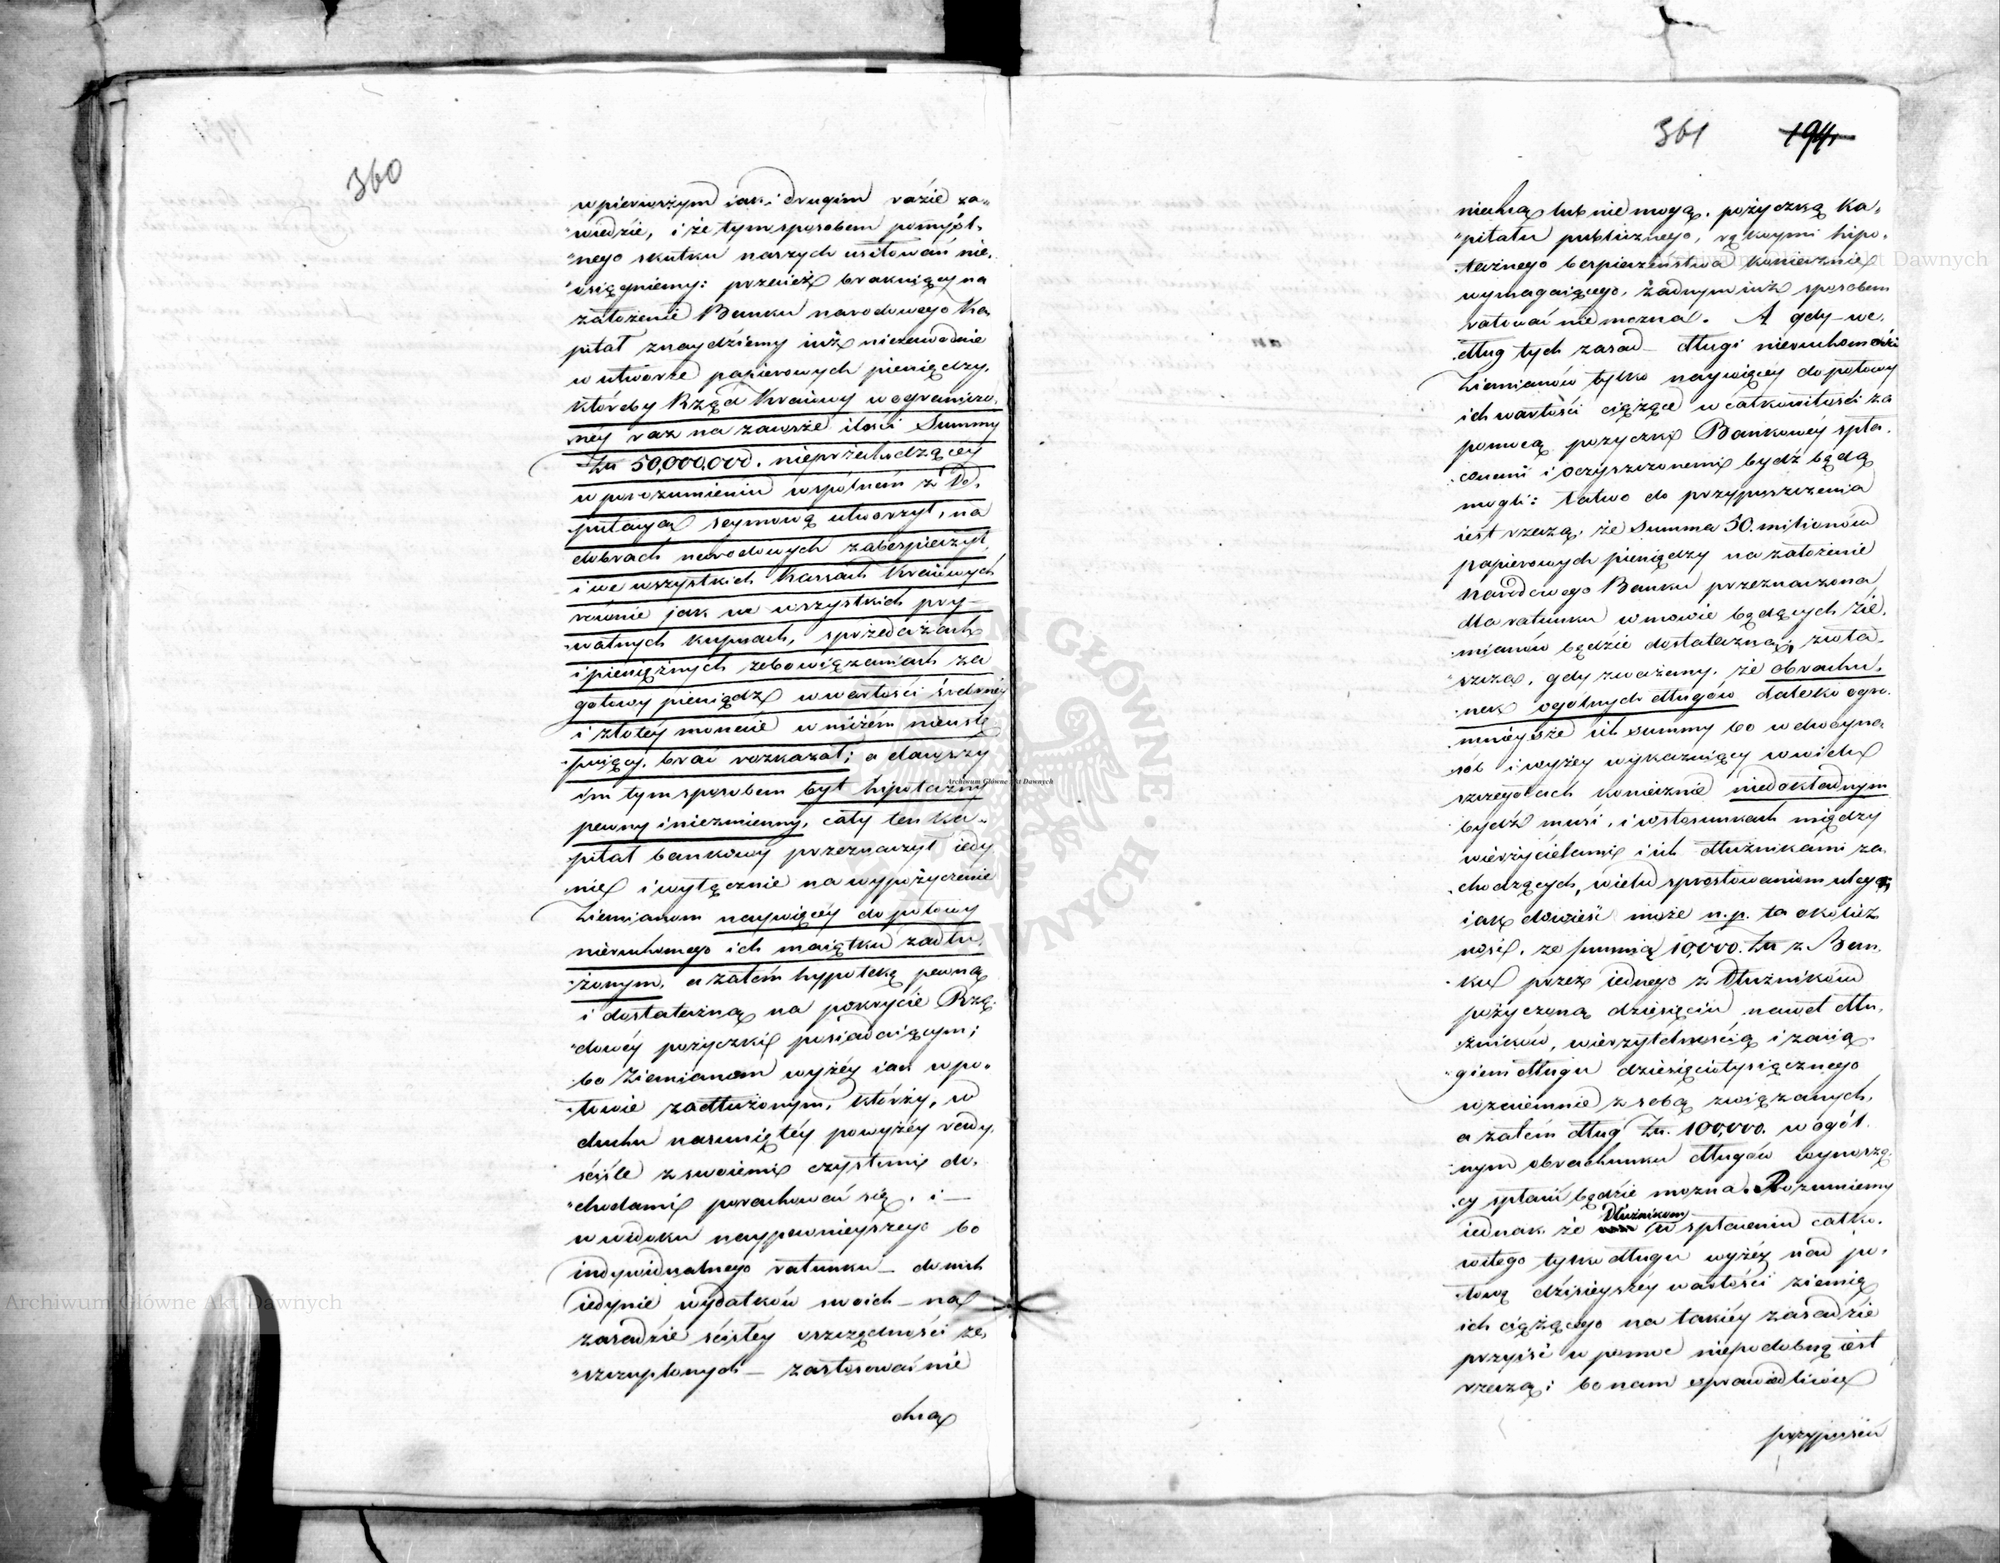 360
w pierwszym jak i drugim razie za„
„wiedzie, i że tym sposobem pomyśl„
„nego skutku naszych usiłowań nie„
„osiągniemy: przecież brakuiący na
założenie Banku narodowego Ka„
pitał znaydziemy iuż niezawodnie
w utworze papierowych pieniędzy,
któreby Rząd Kraiowy w ograniczo„
„néy raz na zawsze ilości Summy
Zł. 50,000,000. nieprzechodzącéy
w porozumieniu wspólnem z De„
„putacyą seymową utworzył, na
dobrach narodowych zabespieczył,
i we wszystkich Kassach Kraiowych
równie jak we wszystkich pry„
„watnych kupnach, sprzedażach
i pieniężnych zobowiązaniach za
gotowy pieniądz w wartości śrebrnéy
i złotéy monecie w niczém nieustę„
„puiący, brać rozkazał; a dawszy
im tym sposobem byt hipoteczny
pewny i niezmienny, cały ten ka„
„pitał bankowy przeznaczył iedy„
„nie i wyłącznie na wypożyczenie
Ziemianom naywięcéy do połowy
nieruchomego ich maiątku zadłu„
„żonym, a zatém hypoteką pewną
i dostateczną na pokrycie Rzą„
„dowéy pożyczki posiadaiącym;
bo Ziemianom wyżéy iak w po„
„łowie zadłużonym, którzy, w
duchu nasuniętéy powyżéy rady,
ściśle z swoiemi czystemi do„
„chodami porachować się, i —
w widoku naypewnieyszego bo
indywidualnego ratunku — do nich
iedynie wydatków swoich — na
zasadzie ścisłéy oszczędności ze„
„szczuplonych — zastosować nie
chcą
361 194
niechcą lub nie mogą, pożyczką Ka„
„pitału publicznego, rękoymi hipo„
„tecznego bespieczeństwa koniecznie
wymagaiącego, żadnym iuż sposobem
ratować nie można. A gdy we„
„dług tych zasad — długi nieruchomości
Ziemianów tylko naywięcéy do połowy
ich wartości ciążące w całkowitości za
pomocą pożyczki Bankowey spła„
„conemi i oczyszczonemi bydź będą
mogli: łatwo do przypuszczenia
iest rzeczą, że Summa 50. milionów
papierowych pieniędzy na założenie
Narodowego Banku przeznaczona
dla ratunku w mowie będących Zie„
„mianów będzie dostateczną, zwła„
„szcza, gdy zważemy, że obrachu„
„nek ogólnych długów daleko ogro„
„mnieysze ich summy bo w dwoyna„
„sób i wyżey wykazuiący w wielu
szczegółach koniecznie niedokładnym
bydź musi, i w stosunkach między
wierzycielami i ich dłużnikami za„
„chodzących, wielu sprostowaniom ulega;
iak dowieść może n.p. ta okolicz„
„ność, ze summą 10,000. Zł. z Ban„
„ku przez iednego z Dłużników
pożyczoną dziesięciu nawet dłu„
„żników, wierzytelnością i zacią„
„giem długu dziesięciotysiącznego
wzaiemnie z sobą związanych,
a zatém dług Zł. 100,000. w ogól„
„nym obrachunku długów wynoszą„
„cy spłacić będzie można. Rozumiemy
iednak że Dłużnikom w spłaceniu całko„
„witego tylko długu wyżéy nad po„
„łową dzisieyszéy wartości ziemią
ich ciążącego na takiéy zasadzie
przyiść w pomoc niepodobną iest
rzeczą; bo nam sprawiedliwie
przypuścić
Archiwum Główne Akt Dawnych
Archiwum Główne Akt Dawnych
Archiwum Główne Akt Dawnych